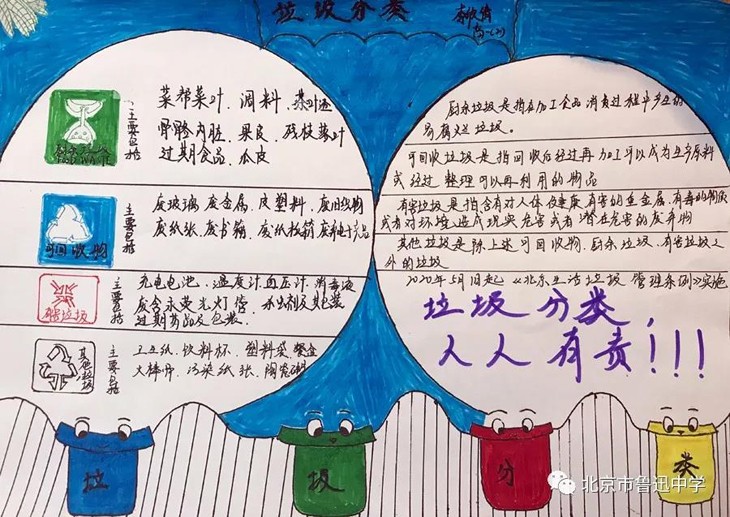 垃圾分类
厨余垃圾
主要包括
菜帮菜叶、调料、茶叶渣
骨骼内脏、果皮、残枝落叶
过期食品、瓜皮
可回收物
主要包括
废玻璃 废金属、废塑料、废旧织物
废纸张、废书籍、废纸板箱
有害垃圾
主要包括
充电电池、温度计、血压计、消毒液
废含汞荧光灯管、杀虫剂及其包装
过期药品及包装、
其他垃圾
主要包括
卫生纸、饮料杯、塑料袋、餐盒
大棒骨、污染纸张、陶瓷
厨余垃圾是指在加工食品消费过程中产生的
易腐烂垃圾。
可回收垃圾是指回收后经过再加工可以成为生产原料
或经过整理可以再利用的物品
有害垃圾是指含有对人体健康有害的重金属、有毒的物质
或者对环境造成现实危害或者潜在危害的废弃物
其他垃圾是除上述可回收物、厨余垃圾、有害垃圾之
外的垃圾
2020年5月1日起《北京生活垃圾管理条例》实施
垃圾分类，
人人有责!!!
垃 圾 分 类
北京市鲁迅中学